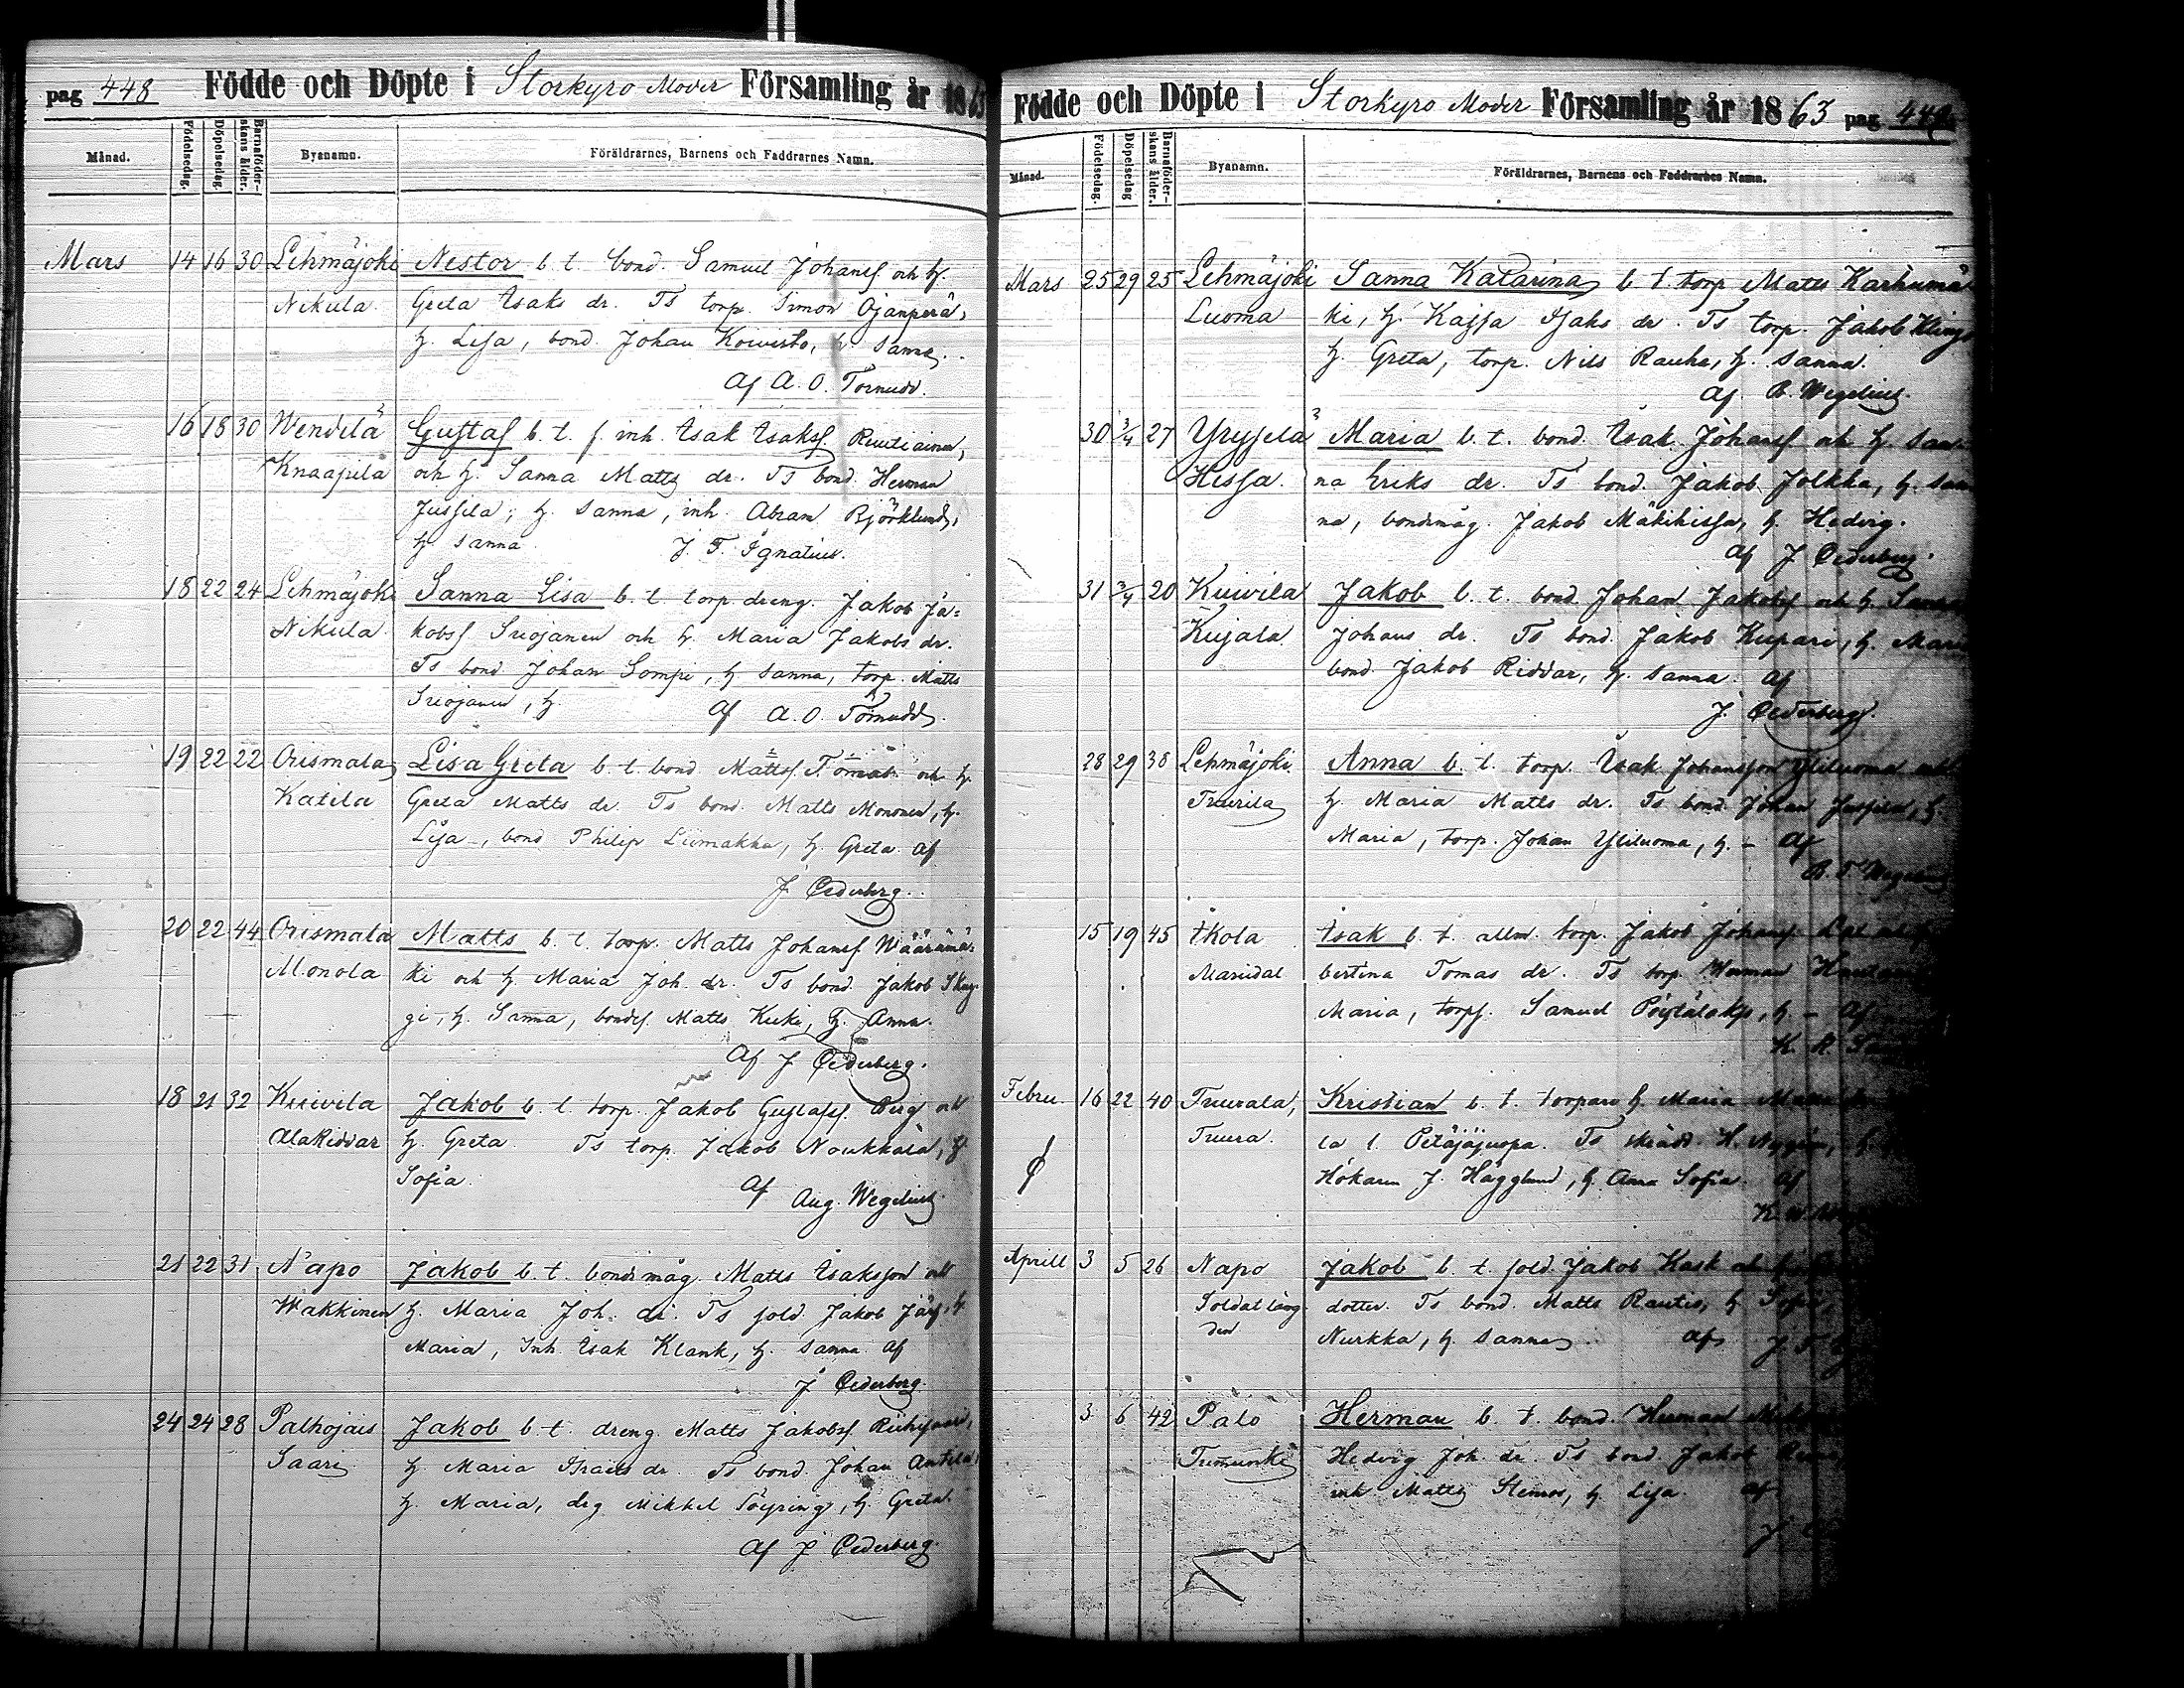 pag 448 Födde och Döpte i Storkyro Moder Församling år 1863
Månad. Födelsedag. Döpelsedag. Barnaföderskans ålder. Byanamn. Föräldrarnes, Barnens och Faddrarnes Namn.
Mars 14 16 30 Lehmäjoki Nestor b. t. bond. Samuel Johansf och h.
Nikula Greta Isaks dr. Ts torp. Simon Ojanperä,
h. Lisa, bond. Johan Koivisto, h. Sanna.
Af A. O. Törnudd.
16 18 30 Wendelä Gustaf b. t. f. inh. Isak Isaksf.
Knaapila och h. Sanna Matts dr. Ts bond. Herman
Jussila, h. Sanna, inh. Abram Björklund,
h. Sanna J. F. Ignatius.
18 22 24 Lehmäjoki Sanna Lisa b. t. torp. dreng. Jakob Ja=
Nikula kobsf och h. Maria Jakobs dr.
Ts bond Johan Sompi, h Sanna, torp. Matts
h. Af A. O. Törnudd.
19 22 22 Orismala Lisa Greta b. t. bond. Mattsf. och h.
Katila Greta Matts dr. Ts bond. Matts Mononen, h.
Lisa, bond Philip Liimakka, h. Greta. af
J. Cederberg.
20 22 44 Orismala Matts b. t. torp. Matts Johansf Wäärämä-
Monola ki och h Maria Joh. dr. Ts bond. Jakob Skog-
gi, h. Sanna, bondes. Matts Kuki, h. Anna.
Af J Cederberg.
18 21 32 Kuivila Jakob b. t. torp. Jakob Gustafsf. Berg och
AlaRiddar h. Greta Ts torp. Jakob Noukkala, h
Sofia. Af Aug. Wegelius
21 22 31 Napo Jakob b. t. bondmåg. Matts Isaksson och
Wakkinen h. Maria Joh. dr. Ts sold. Jakob Järf, h.
Maria, Inh. Isak Klank, h. Sanna af
J Cederberg.
24 24 28 Palhojais Jakob b. t. dreng Matts Jakobsf.
Saari h Maria Israels dr. Ts bond. Johan Antila,
h. Maria, drg Mikkel Söyring, h. Greta.
Af J Cederberg.
Födde och Döpte i Storkyro Moder Församling år 1863 pag 449
Månad. Födelsedag. Döpelsedag Barnaföderskans ålder. Byanamn. Föräldrarnes, Barnens och Faddrarnes Namn.
Mars 25 29 25 Lehmäjoki Sanna Katarina b. t. torp Matts Karhumä
Luoma ki, h. Kajsa Isaks dr. Ts torp. Jakob
h. Greta, torp. Nils Rauha, h. Sanna.
Af. B. Wegelius.
30 3/4 27 Yryselä Maria b. t. bond. Isak Johansf och h. San-
Hissa. na Eriks dr. Ts bond. Jakob Jolkka, h. San
na, bondmåg. Jakob Mäkihissa, h. Hedvig.
af J Cederberg.
31 3/4 20 Kuivila Jakob b. t. bond. Johan Jakobsf och h. Sanna
Kujala Johans dr. Ts bond. Jakob Kupari, h. Maria
bond. Jakob Riddar, h. Sanna. af
J. Cederberg.
28 29 38 Lehmäjoki Anna b. t. torp. Isak Johansson Yliluoma och
Truurila h. Maria Matts dr. Ts bond. Johan Jussila, h
Maria, torp. Johan Yliluoma, h. - Af
B. T. Wegelius
15 19 45 Ikola Isak b. t. allm. torp. Jakob Johansf
Mariedal bertina Tomas dr. Ts torp. Herman
Maria, torpf. Samuel h. - Af
Febru. 16 22 40 Tuurala, Kristian b. t. torpare h. Maria
Tuura. la l. Petäjäjuopa. Ts skrädd. H. Nygren, h.
Hökaren J. Hägglund, h. Anna Sofia. af
Aprill 3 5 26 Napo Jakob b. t. sold. Jakob Kask och h.
Soldatläng- dotter. Ts bond. Matts Rautio, h Sofia,
den Nurkka, h. Sanna. af J. F.
3 6 42 Palo Herman b. t. bond. Herman
Hedvig Joh. dr. Ts bond. Jakob
inh Matts Stenros, h Lisa. af
J